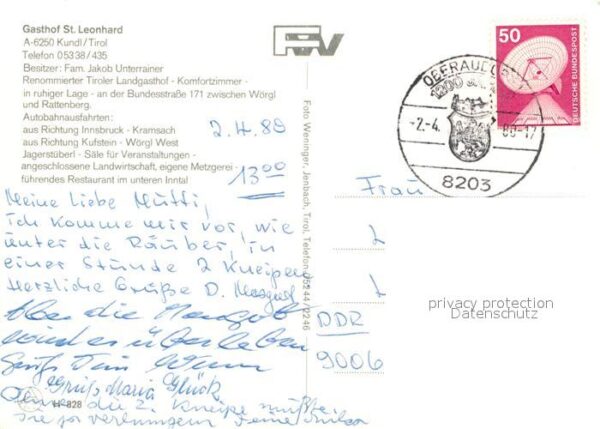 Gasthof St. Leonhard
A-6250 Kundl/Tirol
Telefon 05338/435
Besitzer: Fam. Jakob Unterrainer
Renommierter Tiroler Landgasthof - Komfortzimmer -
in ruhiger Lage - an der Bundesstraße 171 zwischen Wörgl
und Rattenberg.
Autobahnausfahrten:
aus Richtung Innsbruck - Kramsach
aus Richtung Kufstein - Wörgl West
Jagerstüberl - Säle für Veranstaltungen -
angeschlossene Landwirtschaft, eigene Metzgerei -
führendes Restaurant im unteren Inntal
2.4.89
13.00
Meine liebe Mutti,
ich komme mir vor, wie
unter die Räuber, in
einer Stunde 2 Kneipen
Herzliche Grüße D.
Aber die
wird es überleben
Gruß Dein
Gruß Maria Glück
die 2. Kneipe
Sie
H-828
Foto Weninger, Jenbach, Tirol, Telefon 05244/2246
50
DEUTSCHE BUNDESPOST
1200
-2.-4.
8203
Frau
DDR
9006
privacy protection
Datenschutz